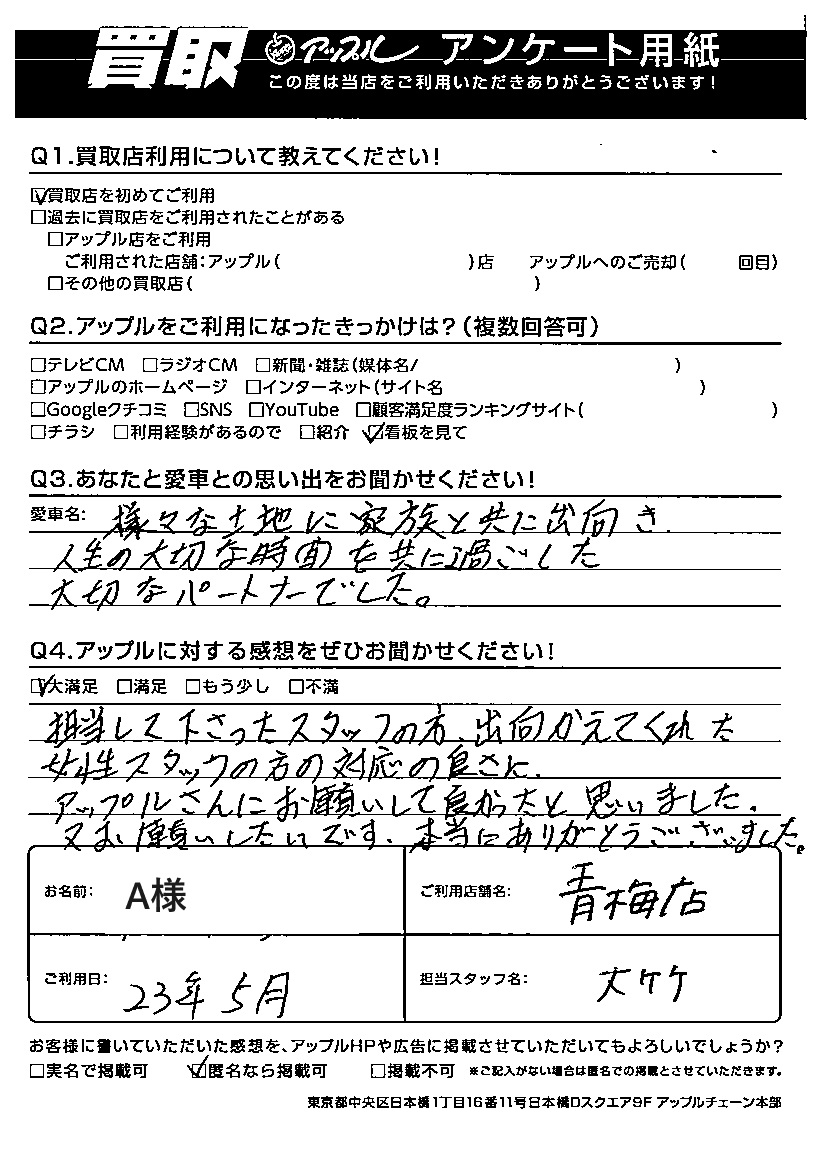 買取 アップル アンケート用紙
この度は当店をご利用いただきありがとうございます!
Q1.買取店利用について教えてください!
☑買取店を初めてご利用
□過去に買取店をご利用されたことがある
□アップル店をご利用
ご利用された店舗:アップル( )店 アップルへのご売却( 回目)
□その他の買取店( )
Q2.アップルをご利用になったきっかけは?(複数回答可)
□テレビCM □ラジオCM □新聞・雑誌(媒体名/ )
□アップルのホームページ □インターネット(サイト名 )
□Googleクチコミ □SNS □YouTube □顧客満足度ランキングサイト( )
□チラシ □利用経験があるので □紹介 ☑看板を見て
Q3.あなたと愛車との思い出をお聞かせください!
愛車名: 様々な土地に家族と共に出向き、
人生の大切な時間を共に過ごした
大切なパートナーでした。
Q4.アップルに対する感想をぜひお聞かせください!
☑大満足 □満足 □もう少し □不満
担当して下さったスタッフの方、出向かえてくれた
女性スタッフの方の対応の良さに、
アップルさんにお願いして良かったと思いました。
又お願いしたいです。本当にありがとうございました。
お名前: A様 ご利用店舗名: 青梅店
ご利用日: 23年5月 担当スタッフ名: 大ケケ
お客様に書いていただいた感想を、アップルHPや広告に掲載させていただいてもよろしいでしょうか?
□実名で掲載可 ☑匿名なら掲載可 □掲載不可 ※ご記入がない場合は匿名での掲載とさせていただきます。
東京都中央区日本橋1丁目16番11号日本橋Dスクエア9F アップルチェーン本部